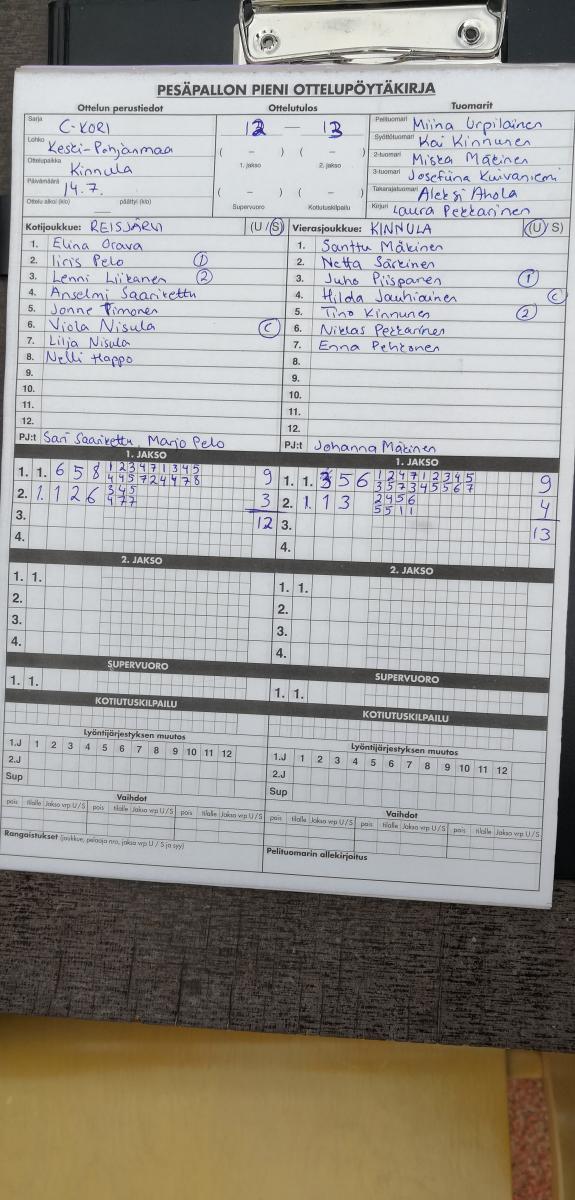 PESÄPALLON PIENI OTTELUPÖYTÄKIRJA
Ottelun perustiedot Ottelutulos Tuomarit
Sarja C-KORI 12 — 13 Pelituomari Miina Urpilainen
Lohko Keski-Pohjanmaa ( – ) ( – ) Syöttötuomari Kai Kinnunen
Ottelupaikka Kinnula 1. jakso 2. jakso 2-tuomari Miska Mäkinen
Päivämäärä 14.7. ( – ) ( – ) 3-tuomari Josefiina Kuivaniemi
Ottelu alkoi (klo) päättyi (klo) Supervuoro Kotiutuskilpailu Takarajatuomari Aleksi Ahola
Kirjuri Laura Pekkarinen
Kotijoukkue: REISJÄRVI (U/S) Vierasjoukkue: KINNULA (U/S)
1. Elina Orava 1. Santtu Mäkinen
2. Iiris Pelo 1 2. Netta Särkinen
3. Lenni Liikanen 2 3. Juho Piispanen 1
4. Anselmi Saarikettu 4. Hilda Jauhiainen C
5. Jonne Timonen 5. Tino Kinnunen 2
6. Viola Nisula C 6. Niklas Pekkarinen
7. Lilja Nisula 7. Enna Pehkonen
8. Nelli Happo 8.
9. 9.
10. 10.
11. 11.
12. 12.
PJ:t Sari Saarikettu, Marjo Pelo PJ:t Johanna Mäkinen
1. JAKSO 1. JAKSO
1. 1. 6 5 8 1 2 3 4 7 1 3 4 5 9 1. 1. 3 5 6 1 2 4 7 1 2 3 4 5 9
4 4 5 7 2 4 4 7 8 3 5 7 3 4 5 5 6 7
2. 1. 1 2 6 3 4 5 3 2. 1. 1 3 2 4 5 6 4
4 7 7 5 5 1 1
3. 12 3. 13
4. 4.
2. JAKSO 2. JAKSO
1. 1. 1. 1.
2. 2.
3. 3.
4. 4.
SUPERVUORO SUPERVUORO
1. 1. 1. 1.
KOTIUTUSKILPAILU KOTIUTUSKILPAILU
Lyöntijärjestyksen muutos Lyöntijärjestyksen muutos
1.J 1 2 3 4 5 6 7 8 9 10 11 12 1.J 1 2 3 4 5 6 7 8 9 10 11 12
2.J 2.J
Sup Sup
Vaihdot Vaihdot
pois tilalle Jakso vrp U/S pois tilalle Jakso vrp U/S pois tilalle Jakso vrp U/S pois tilalle Jakso vrp U/S pois tilalle Jakso vrp U/S pois tilalle Jakso vrp U/S
Rangaistukset (joukkue, pelaaja nro, jakso vrp U / S ja syy) Pelituomarin allekirjoitus